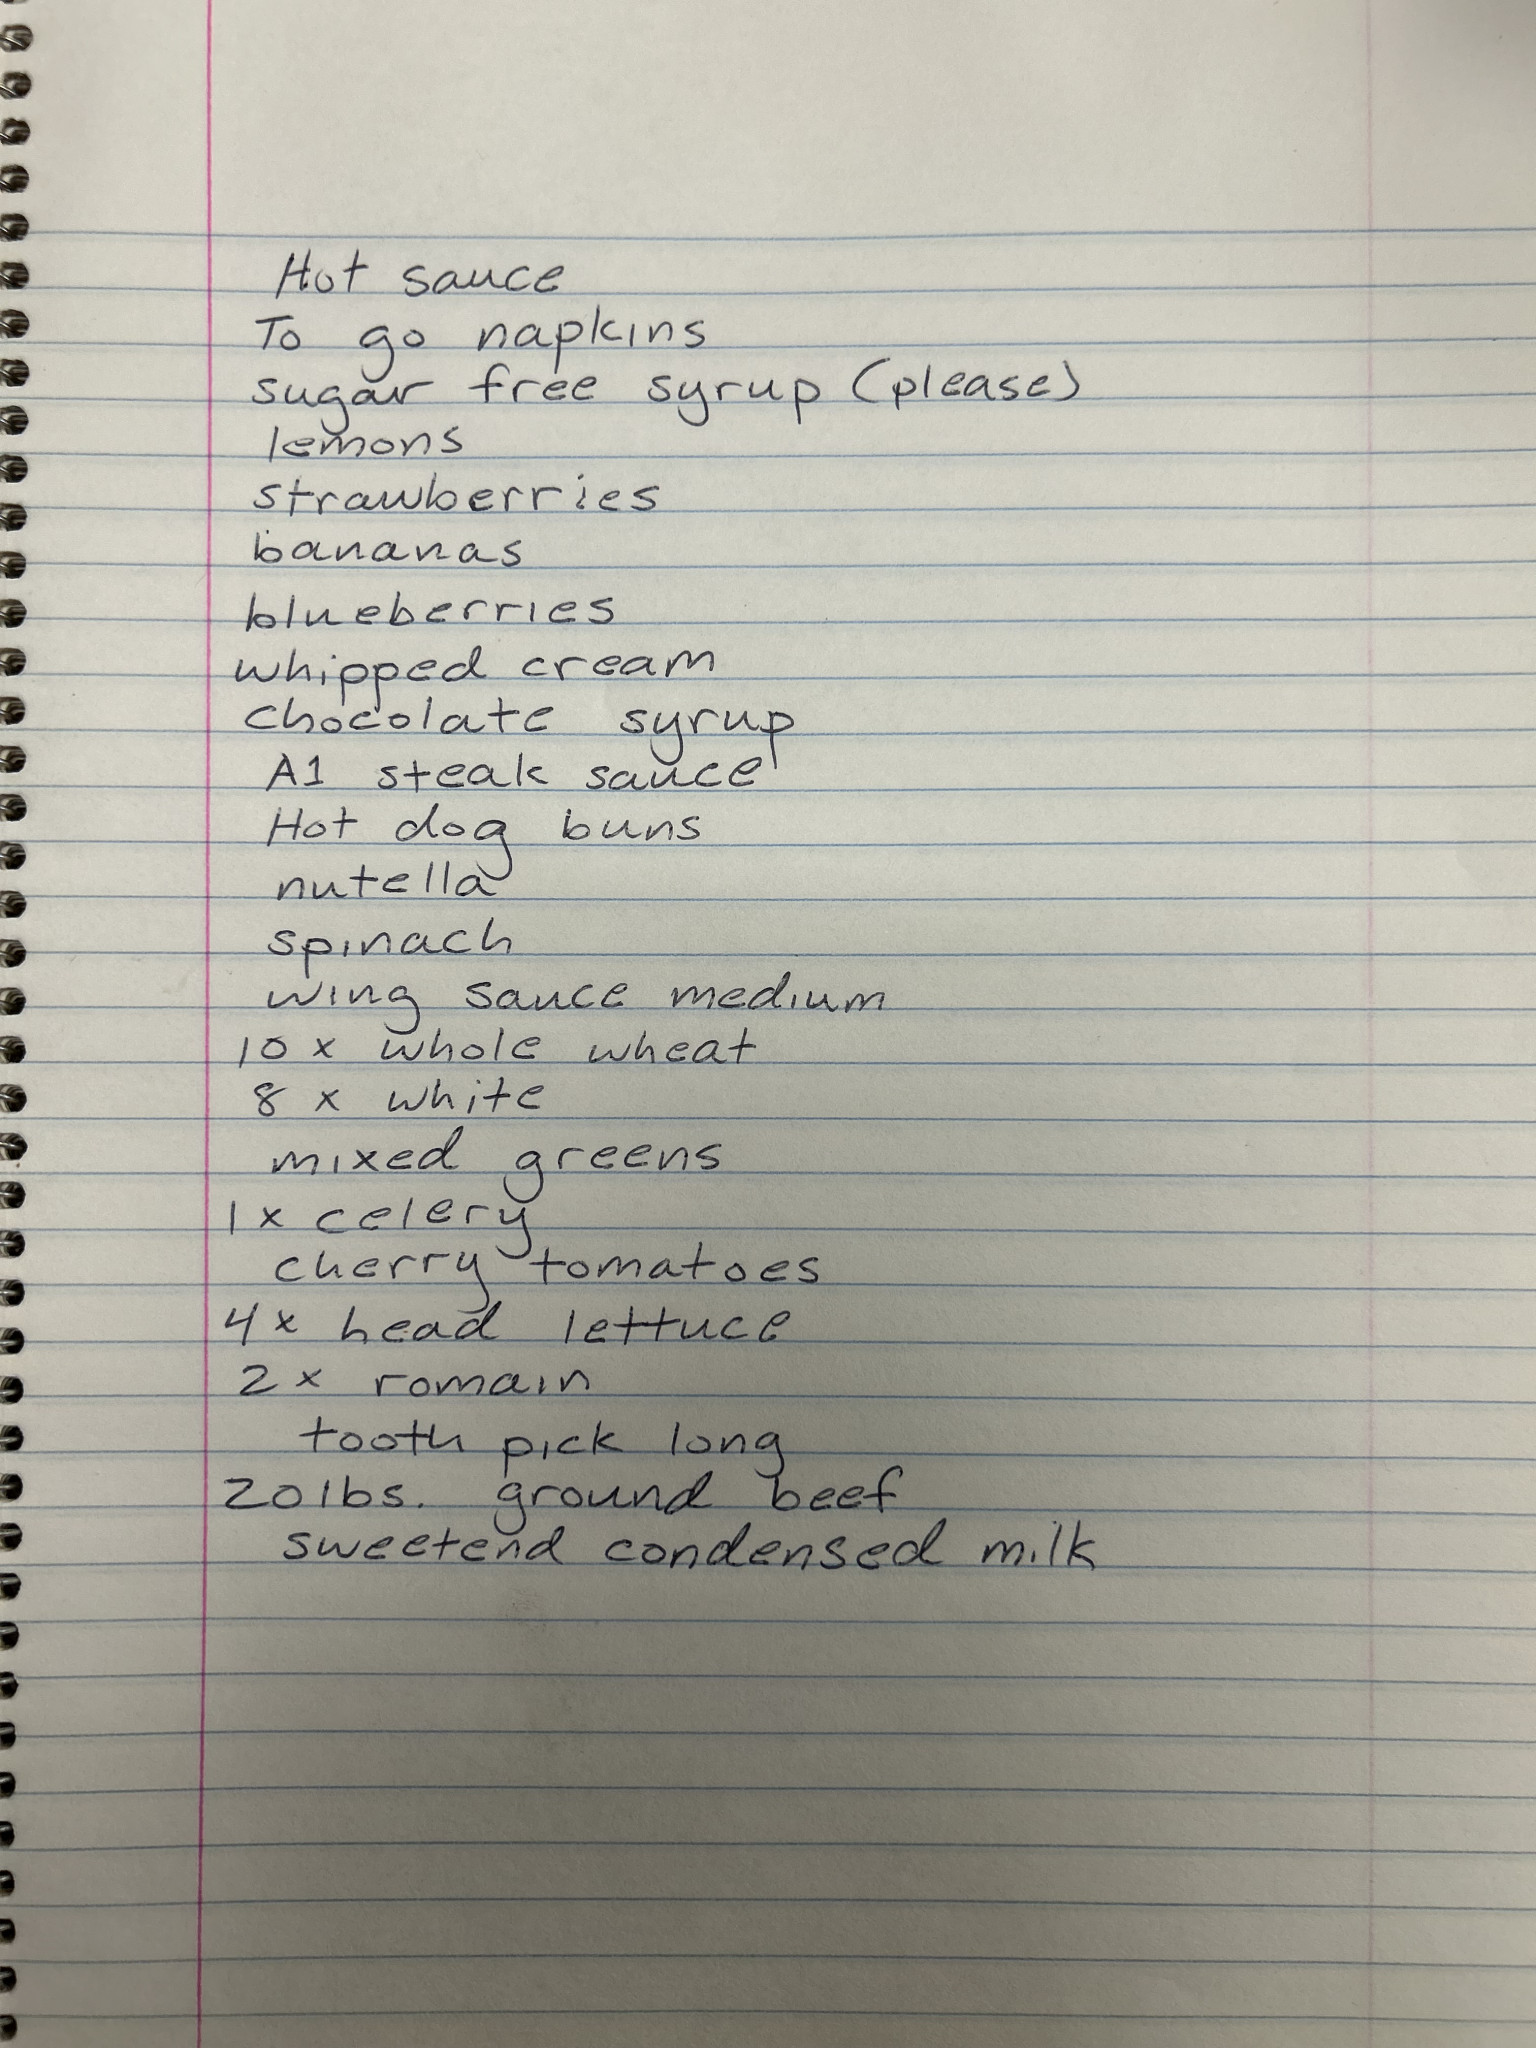 Hot sauce
To go napkins
sugar free syrup (please)
lemons
strawberries
bananas
blueberries
whipped cream
chocolate syrup
A1 steak sauce
Hot dog buns
nutella
spinach
wing sauce medium
10 x whole wheat
8 x white
mixed greens
1x celery
cherry tomatoes
4x head lettuce
2x romain
tooth pick long
20lbs. ground beef
sweetend condensed milk